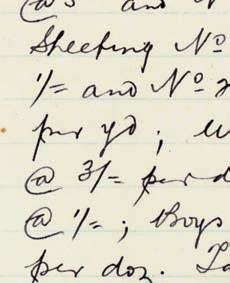 @ 3 and N
Sheeting No
1/= and No 2
per yd ;
@ 3/= per d
@ 1/= ; Boys
per doz. La